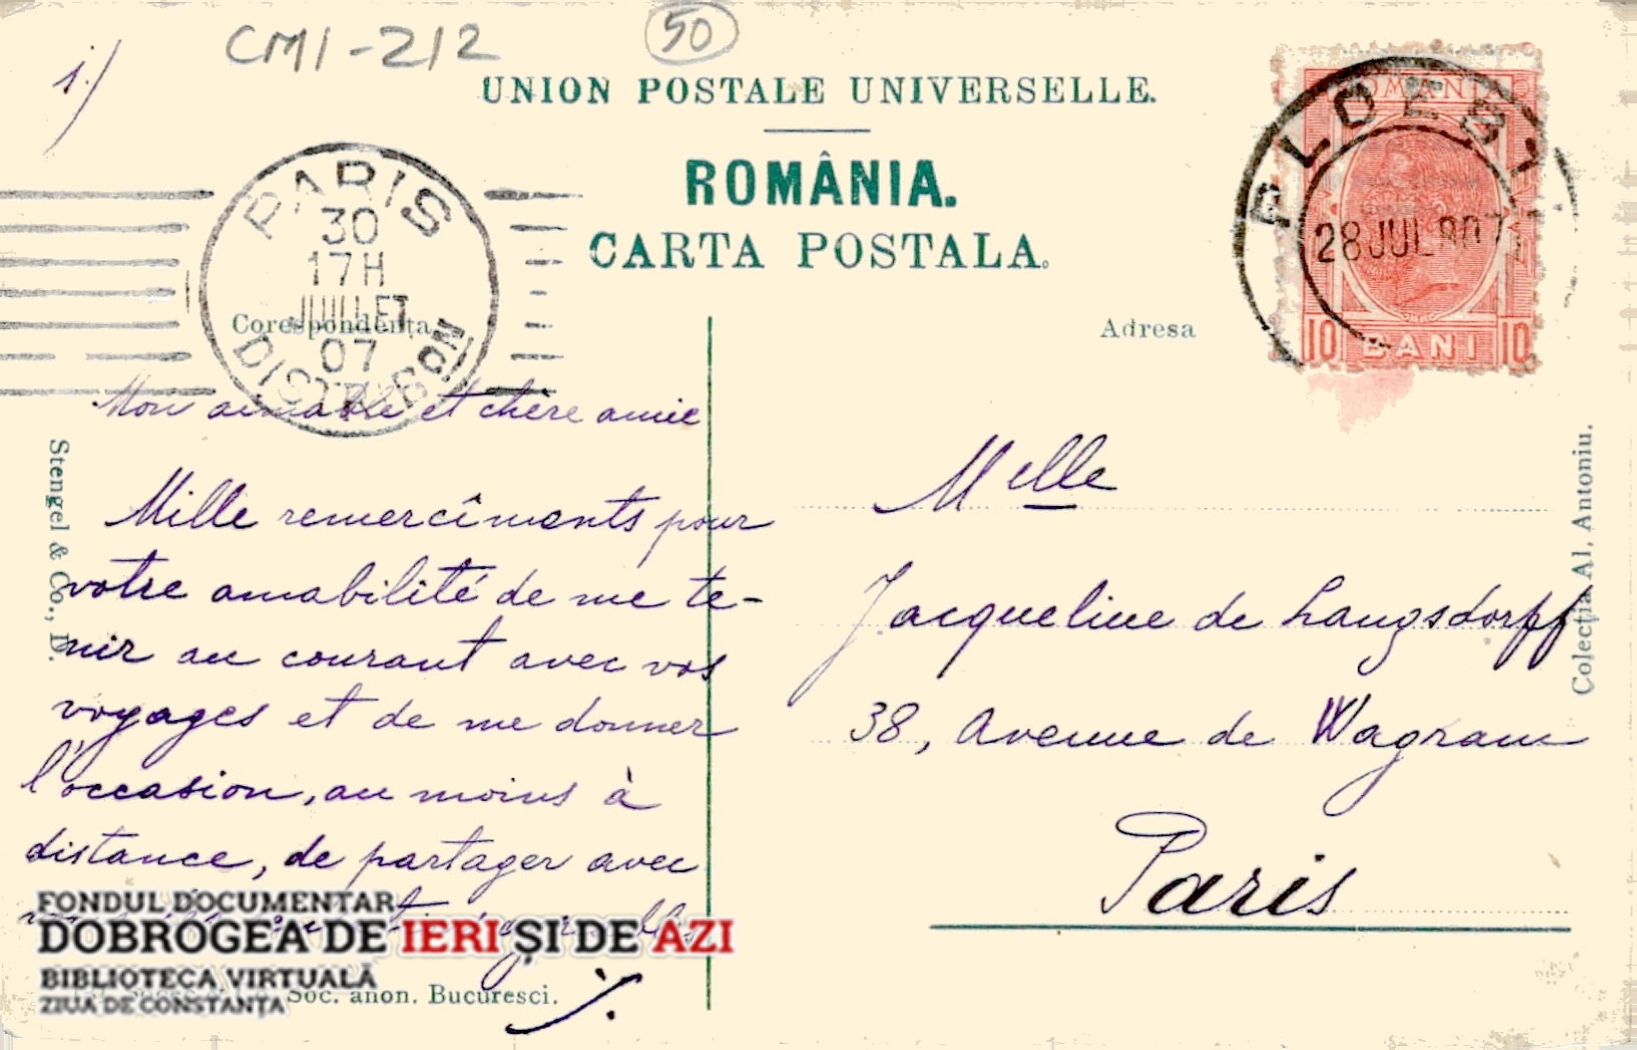 CMI-212
50
1.)
UNION POSTALE UNIVERSELLE.
ROMÂNIA.
CARTA POSTALA.
Corespondența
Adresa
PARIS
30
17H
JUILLET
07
ROMANIA
10 BANI 10
PLOESCI
28 JUL 907
Mon aimable et chère amie
Mille remercîments pour
votre amabilité de me te-
nir au courant avec vos
voyages et de me donner
l'occasion, au moins à
distance, de partager avec
Melle
Jacqueline de Langsdorff
38, Avenue de Wagram
Paris
Stengel & Co., D.
Colecția Al. Antoniu.
FONDUL DOCUMENTAR
DOBROGEA DE IERI ȘI DE AZI
BIBLIOTECA VIRTUALĂ
ZIUA DE CONSTANȚA
Soc. anon. Bucuresci.